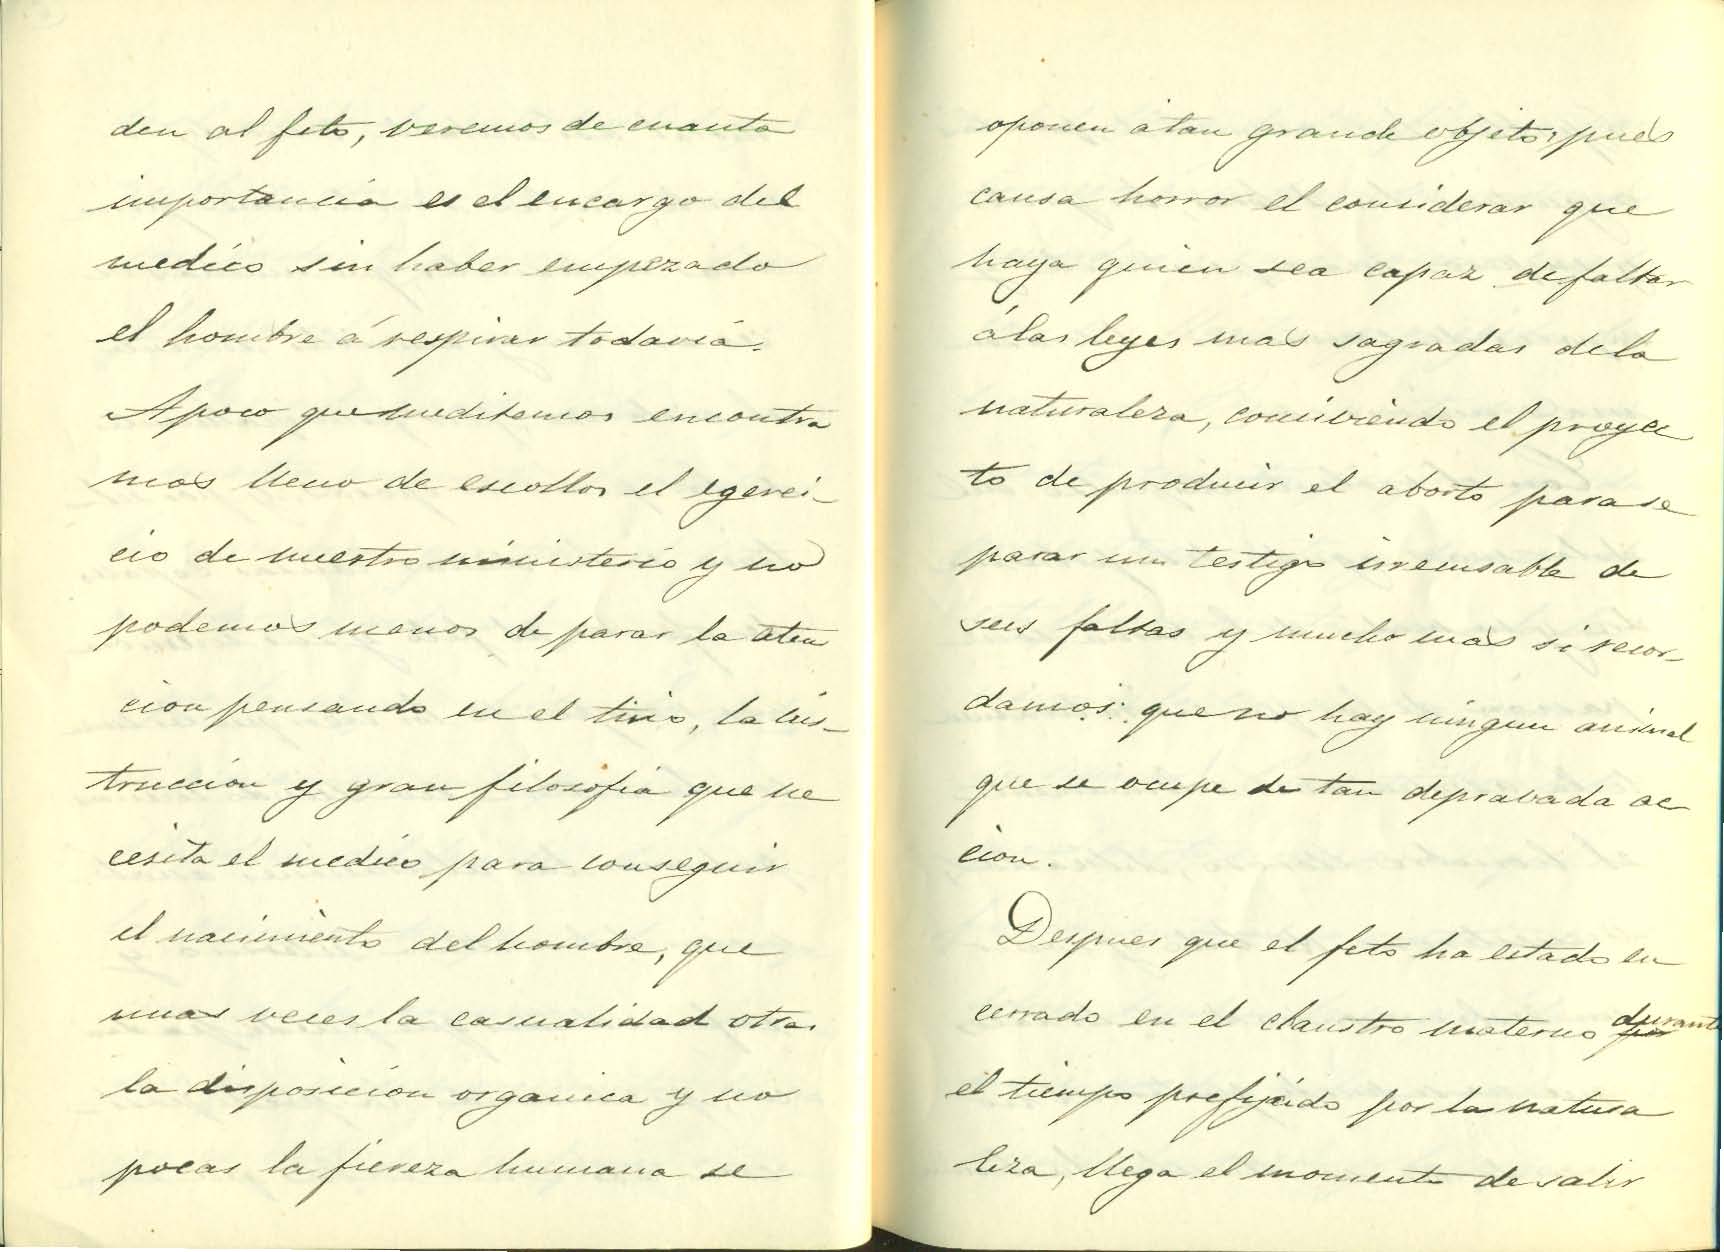 den al feto, veremos de cuanta
importancia es el encargo del
medico sin haber empezado
el hombre á respirar todavia.
Apoco que meditemos encontra
mos lleno de escollos el egerci-
cio de nuestro ministerio y no
podemos menos de parar la aten
cion pensando en el tino, la ins-
truccion y gran filosofia que ne
cesita el medico para conseguir
el nacimiento del hombre, que
unas veces la casualidad otras
la disposicion organica y no
pocas la fiereza humana se
oponen á tan grande objeto, pues
causa horror el considerar que
haya quien sea capaz de faltar
á las leyes mas sagradas de la
naturaleza, concibiendo el proyec
to de producir el aborto para se
parar un testigo irrecusable de
sus faltas y mucho mas si recor-
damos que no hay ningun animal
que se ocupe de tan depravada ac
cion.
Despues que el feto ha estado en
cerrado en el claustro materno durante
el tiempo prefijado por la natura
leza, llega el momento de salir